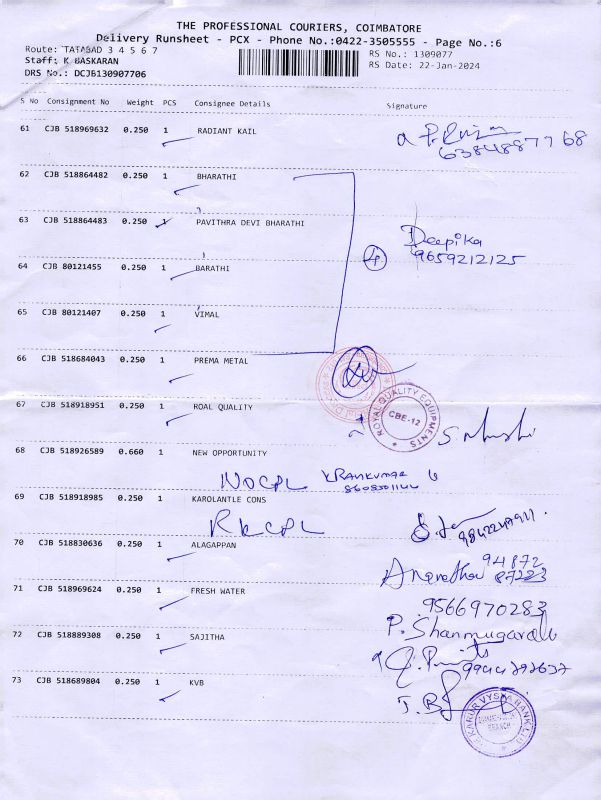 THE PROFESSIONAL COURIERS, COIMBATORE
Delivery Runsheet - PCX - Phone No.:0422-3505555 - Page No.:6
Route: TATABAD 3 4 5 6 7
RS No.: 1309077
Staff: K BASKARAN
RS Date: 22-Jan-2024
DRS No.: DCJB130907706
S No Consignment No Weight PCS Consignee Details Signature
61 CJB 518969632 0.250 1 RADIANT KAIL
6384887768
62 CJB 518864482 0.250 1 BHARATHI
63 CJB 518864483 0.250 1 PAVITHRA DEVI BHARATHI
Deepika
4
9659212125
64 CJB 80121455 0.250 1 BARATHI
65 CJB 80121407 0.250 1 VIMAL
66 CJB 518684043 0.250 1 PREMA METAL
67 CJB 518918951 0.250 1 ROAL QUALITY
ROYAL QUALITY EQUIPMENTS
CBE-12
68 CJB 518926589 0.660 1 NEW OPPORTUNITY
NOCPL
8608501144
69 CJB 518918985 0.250 1 KAROLANTLE CONS
RKCPL
70 CJB 518830636 0.250 1 ALAGAPPAN
94872
87223
71 CJB 518969624 0.250 1 FRESH WATER
9566970283
P. Shanmugavalli
72 CJB 518889308 0.250 1 SAJITHA
73 CJB 518689804 0.250 1 KVB
KARUR VYSYA BANK LTD
BRANCH